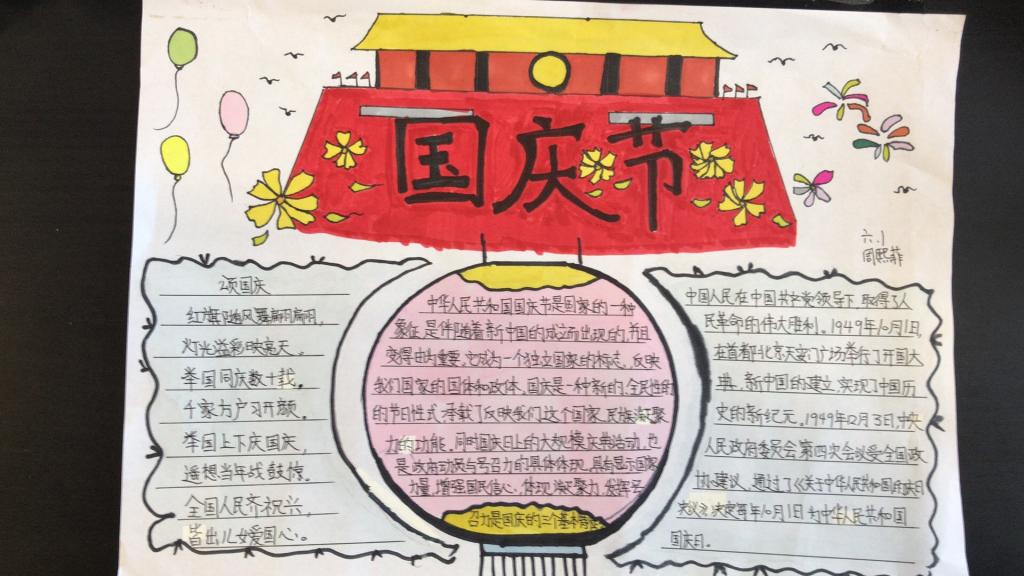 国庆节
六.1
周熙菲
颂国庆
红旗随风舞翩翩，
灯光溢彩映亮天。
举国同庆数十载，
千家万户习开颜。
举国上下庆国庆，
遥想当年战鼓惊。
全国人民齐祝兴，
皆出儿女爱国心。
中华人民共和国国庆节是国家的一种
象征,是伴随着新中国的成立而出现的,并且
变得尤为重要,它成为一个独立国家的标志,反映
我们国家的国体和政体,国庆是一种新的、全民性的
的节日性式,承载了反映我们这个国家、民族凝聚
力的功能。同时国庆日上的大规模庆典活动,也
是政府动员与号召力的具体体现,具有显示国家
力量,增强国民信心,体现凝聚力,发挥号
召力是国庆的三个基本特征
中国人民在中国共产党领导下,取得了人
民革命的伟大胜利。1949年10月1日,
在首都北京天安门广场举行了开国大
典,新中国的建立,实现了中国历
史的新纪元,1949年12月3日,中央
人民政府委员会第四次会议受全国政
协建议,通过了《关于中华人民共和国的国庆日
决议》,决定每年10月1日为中华人民共和国
国庆日。